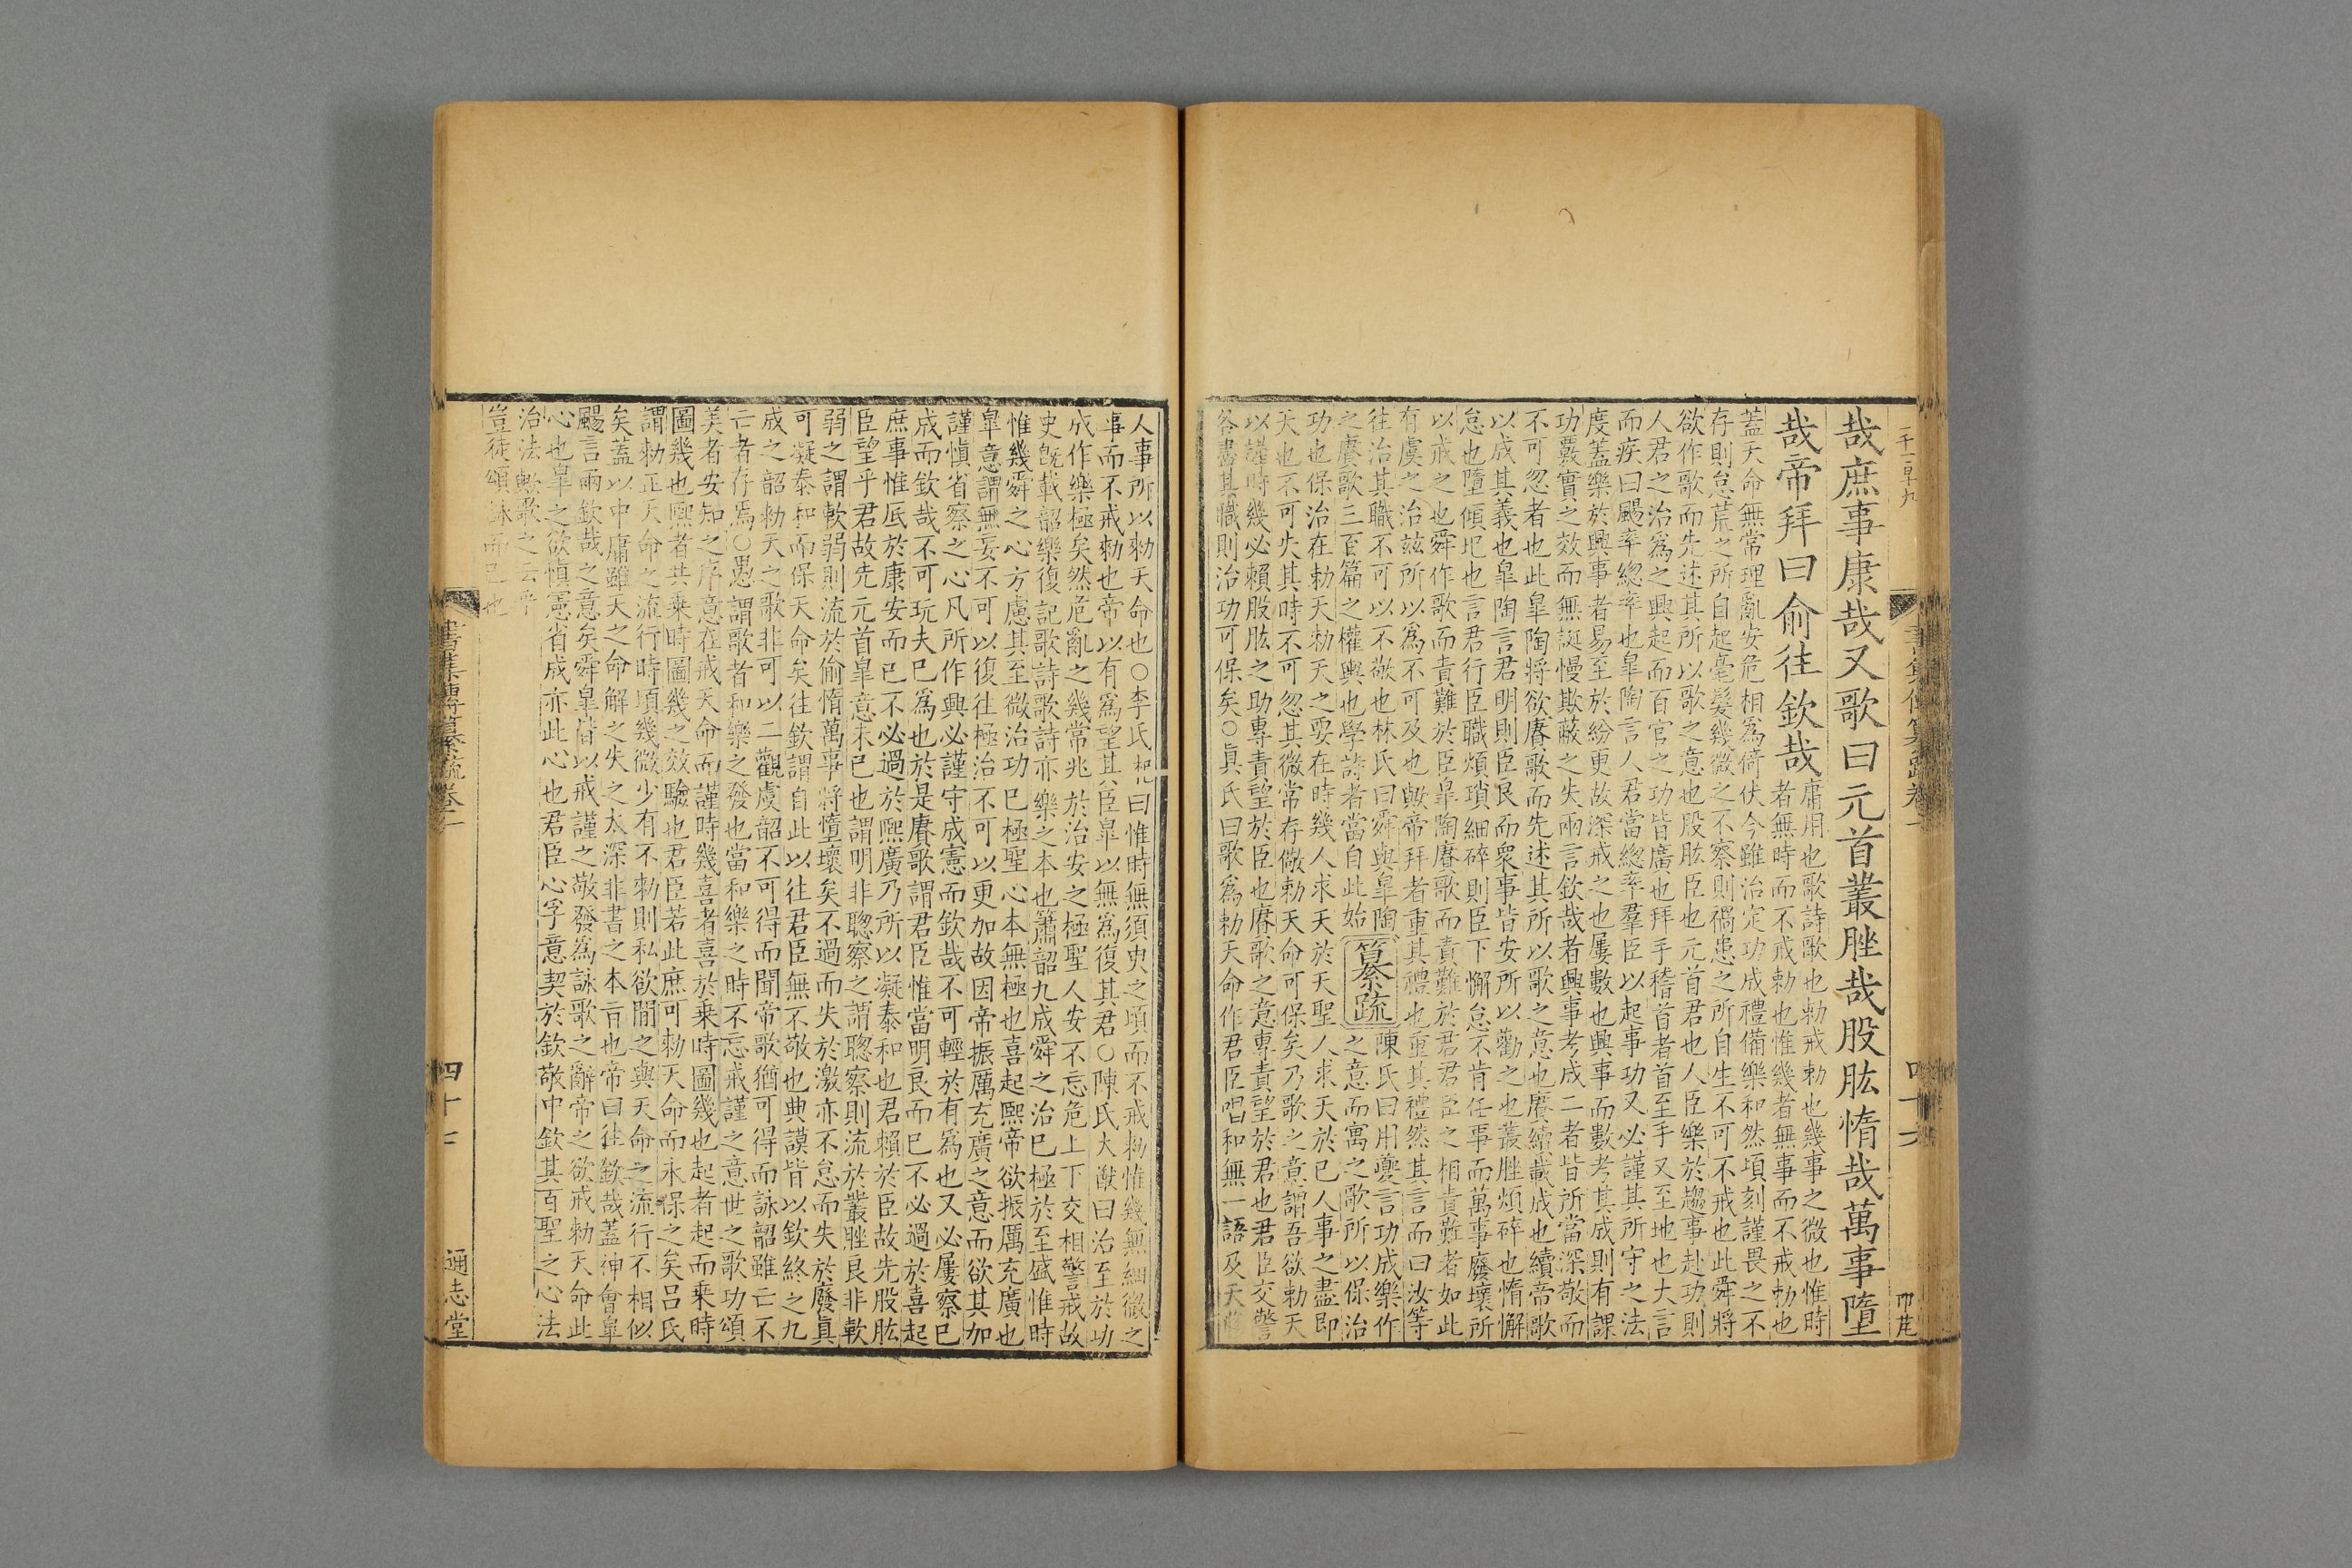 哉庶事康哉又歌曰元首叢脞哉股肱惰哉萬事墮
哉帝拜曰俞往欽哉
庸用也歌詩歌也勑戒勑也幾事之微也惟時
者無時而不戒勑也惟幾者無事而不戒勑也
蓋天命無常理亂安危相爲倚伏今雖治定功成禮備樂和然頃刻謹畏之不
存則怠荒之所自起毫髮幾微之不察則禍患之所自生不可不戒也此舜將
欲作歌而先述其所以歌之意也股肱臣也元首君也人臣樂於趨事赴功則
人君之治爲之興起而百官之功皆廣也拜手稽首者首至手又至地也大言
而疾曰颺率總率也皐陶言人君當總率羣臣以起事功又必謹其所守之法
度蓋樂於興事者易至於紛更故深戒之也屢數也興事而數考其成則有課
功覈實之效而無誕慢欺蔽之失兩言欽哉者興事考成二者皆所當深敬而
不可忽者也此皐陶將欲賡歌而先述其所以歌之意也賡續載成也續帝歌
以成其義也皐陶言君明則臣良而衆事皆安所以勸之也叢脞煩碎也惰懈
怠也墮傾圯也言君行臣職煩瑣細碎則臣下懈怠不肯任事而萬事廢壞所
以戒之也舜作歌而責難於臣皐陶賡歌而責難於君君臣之相責難者如此
有虞之治茲所以爲不可及也歟帝拜者重其禮也重其禮然其言而曰汝等
往治其職不可以不敬也林氏曰舜與皐陶
之賡歌三百篇之權輿也學詩者當自此始
纂疏
陳氏曰用夔言功成樂作
之意而寓之歌所以保治
功也保治在勑天勑天之要在時幾人求天於天聖人求天於已人事之盡即
天也不可失其時不可忽其微常存儆勑天命可保矣乃歌之意謂吾欲勑天
以謹時幾必賴股肱之助專責望於臣也賡歌之意專責望於君也君臣交警
各盡其職則治功可保矣○眞氏曰歌爲勑天命作君臣唱和無一語及天
四十六
人事所以勑天命也○李氏杞曰惟時無須臾之頃而不戒勑惟幾無細微之
事而不戒勑也帝以有爲望其臣皐以無爲復其君○陳氏大猷曰治至於功
成作樂極矣然危亂之幾常兆於治安之極聖人安不忘危上下交相警戒故
史旣載韶樂復記歌詩歌詩亦樂之本也簫韶九成舜之治已極於至盛惟時
惟幾舜之心方慮其至微治功已極聖心本無極也喜起熙帝欲振厲充廣也
皐意謂無妄不可以復往極治不可以更加故因帝振厲充廣之意而欲其加
謹愼省察之心凡所作興必謹守成憲而欽哉不可輕於有爲也又必屢察已
成而欽哉不可玩夫已爲也於是賡歌謂君臣惟當明良而已不必過於喜起
庶事惟厎於康安而已不必過於熙廣乃所以凝泰和也君賴於臣故先股肱
臣望乎君故先元首皐意未已也謂明非聰察之謂聰察則流於叢脞良非軟
弱之謂軟弱則流於偷惰萬事將墮壞矣不過而失於激亦不怠而失於廢眞
可凝泰和而保天命矣往欽謂自此以往君臣無不敬也典謨皆以欽終之九
成之韶勑天之歌非可以二觀虞韶不可得而聞帝歌猶可得而詠韶雖亡不
亡者存焉○愚謂歌者和樂之發也當和樂之時不忘戒謹之意世之歌功頌
美者安知之序意在戒天命而謹時幾喜者喜於乗時圖幾也起者起而乗時
圖幾也熙者共乗時圖幾之效驗也君臣若此庶可勑天命而永保之矣呂氏
謂勑正天命之流行時頃幾微少有不勑則私欲閒之與天命之流行不相似
矣蓋以中庸雖天之命解之失之太深非書之本旨也帝曰往欽哉蓋神會皐
颺言兩欽哉之意矣舜皐皆以戒謹之敬發爲詠歌之辭帝之欲戒勑天命此
心也皐之欲愼憲省成亦此心也君臣心孚意契於欽敬中欽其百聖之心法
治法歟歌之云乎
豈徒頌詠而已也
書集傳纂疏卷一
四十七
通志堂